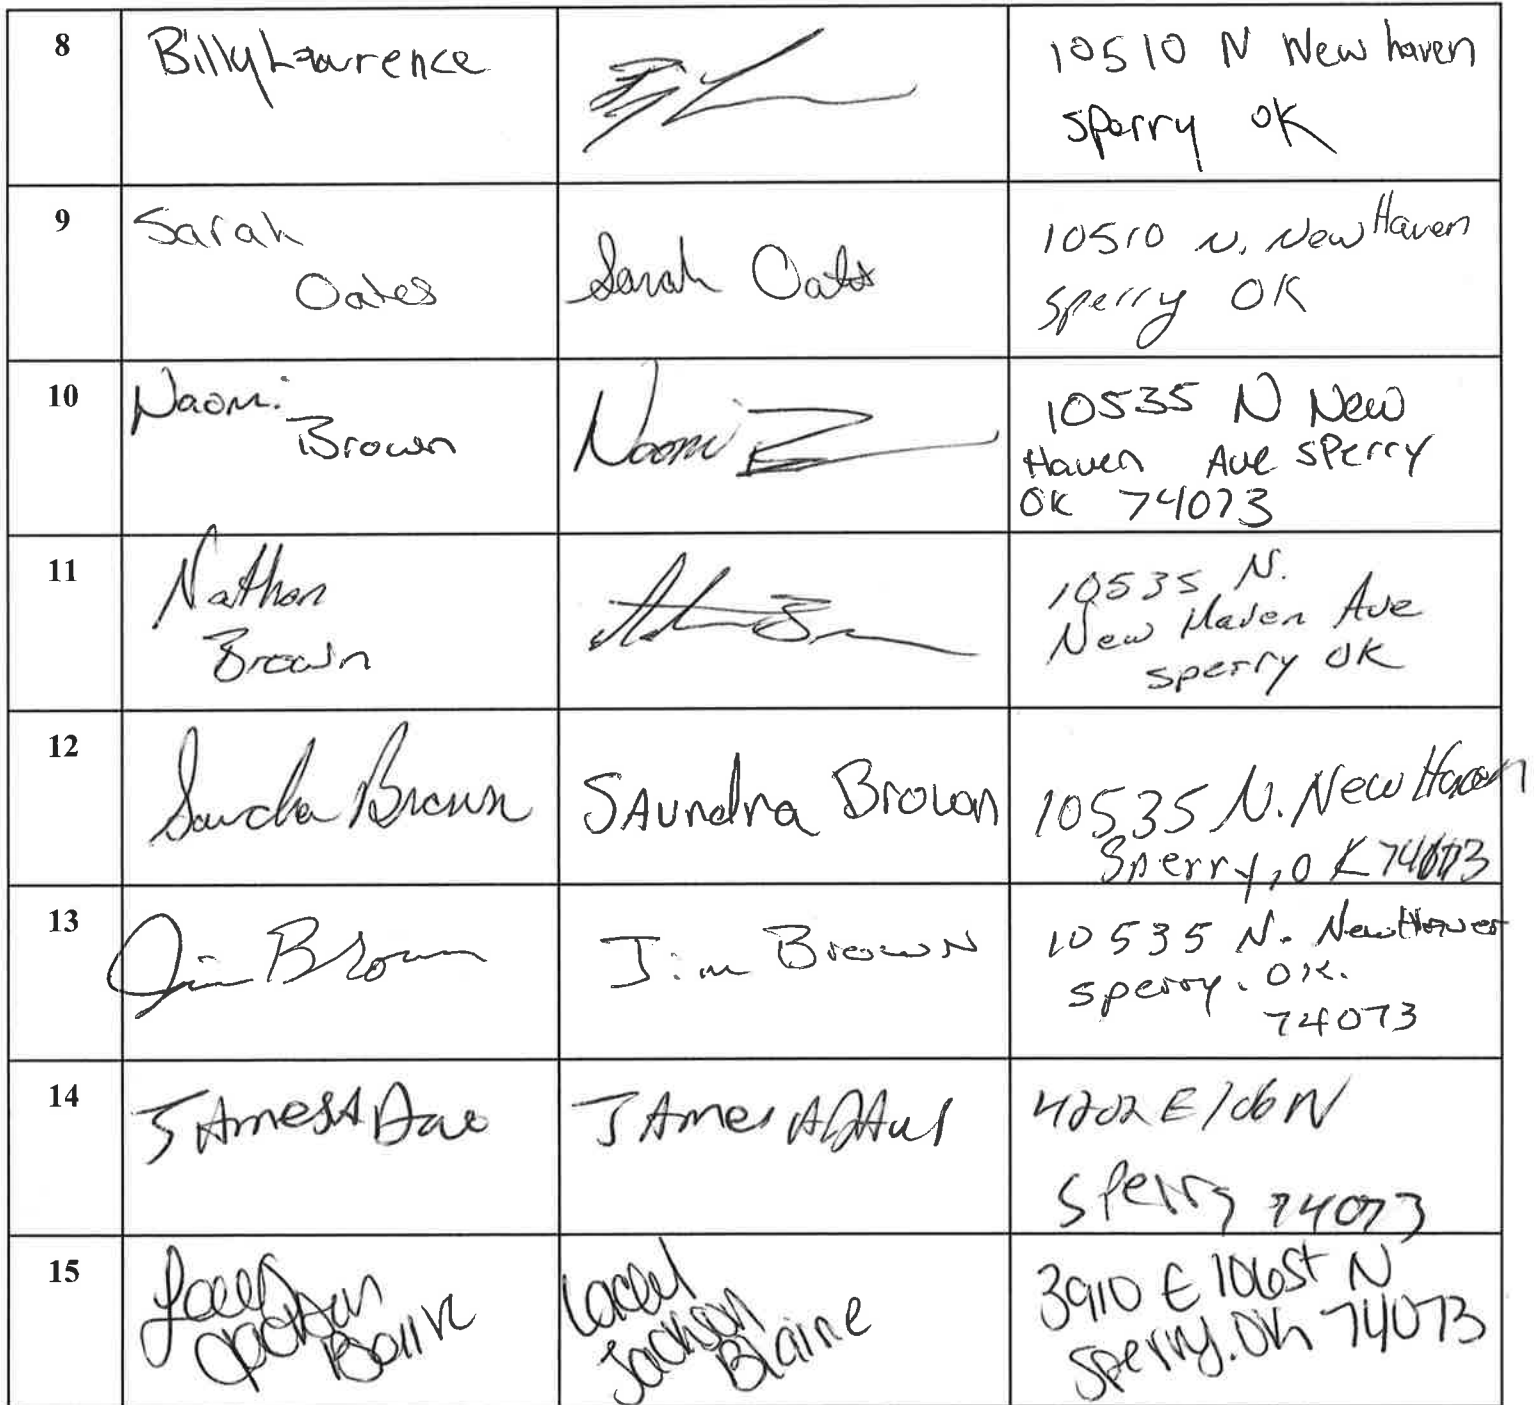 8
Billy Lawrence
10510 N New haven
sperry OK
9
Sarah
Oates
Sarah Oates
10510 N. New Haven
sperry OK
10
Naomi
Brown
Naomi B
10535 N New
Haven Ave Sperry
OK 74073
11
Nathan
Brown
10535 N.
New Haven Ave
sperry OK
12
Saundra Brown
SAundra Brown
10535 N. New Haven
Sperry, OK 74073
13
Jim Brown
Jim Brown
10535 N. New Haven
sperry. OK.
74073
14
JAmes A
JAmes A
4202 E 106 N
Sperry 74073
15
Lacey
Jackson
Lacey
Jackson
Blaine
3910 E 106st N
Sperry. OK 74073